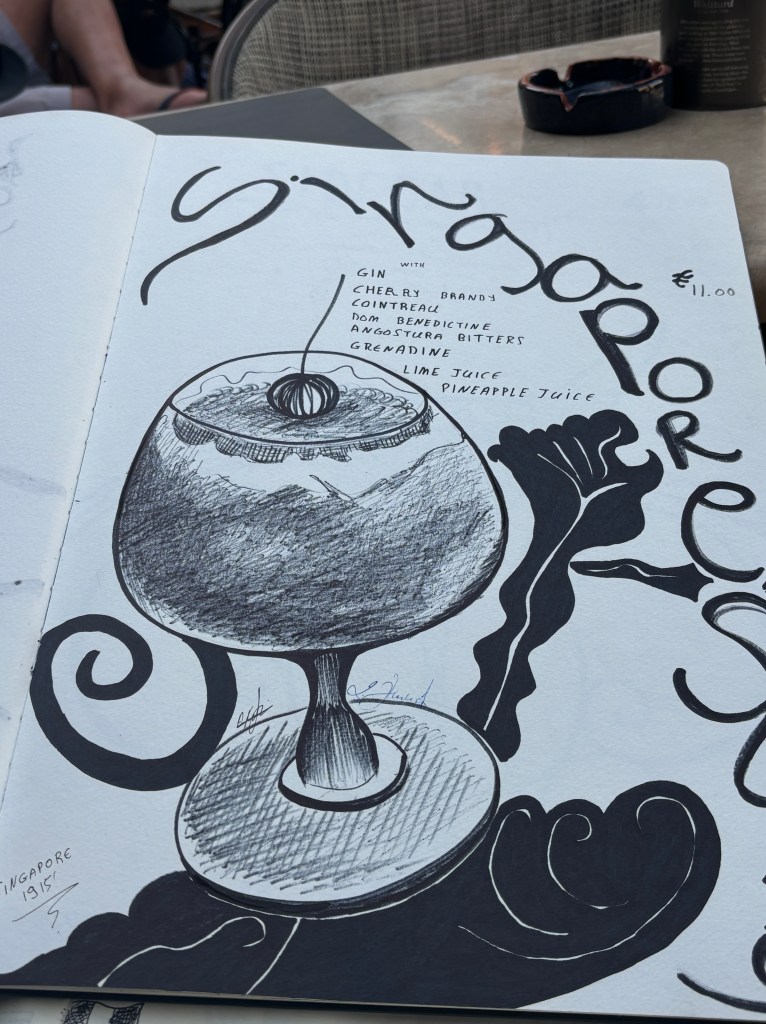 Singapore
€ 11.00
WITH
GIN
CHERRY BRANDY
COINTREAU
DOM BENEDICTINE
ANGOSTURA BITTERS
GRENADINE
LIME JUICE
PINEAPPLE JUICE
SINGAPORE
1915